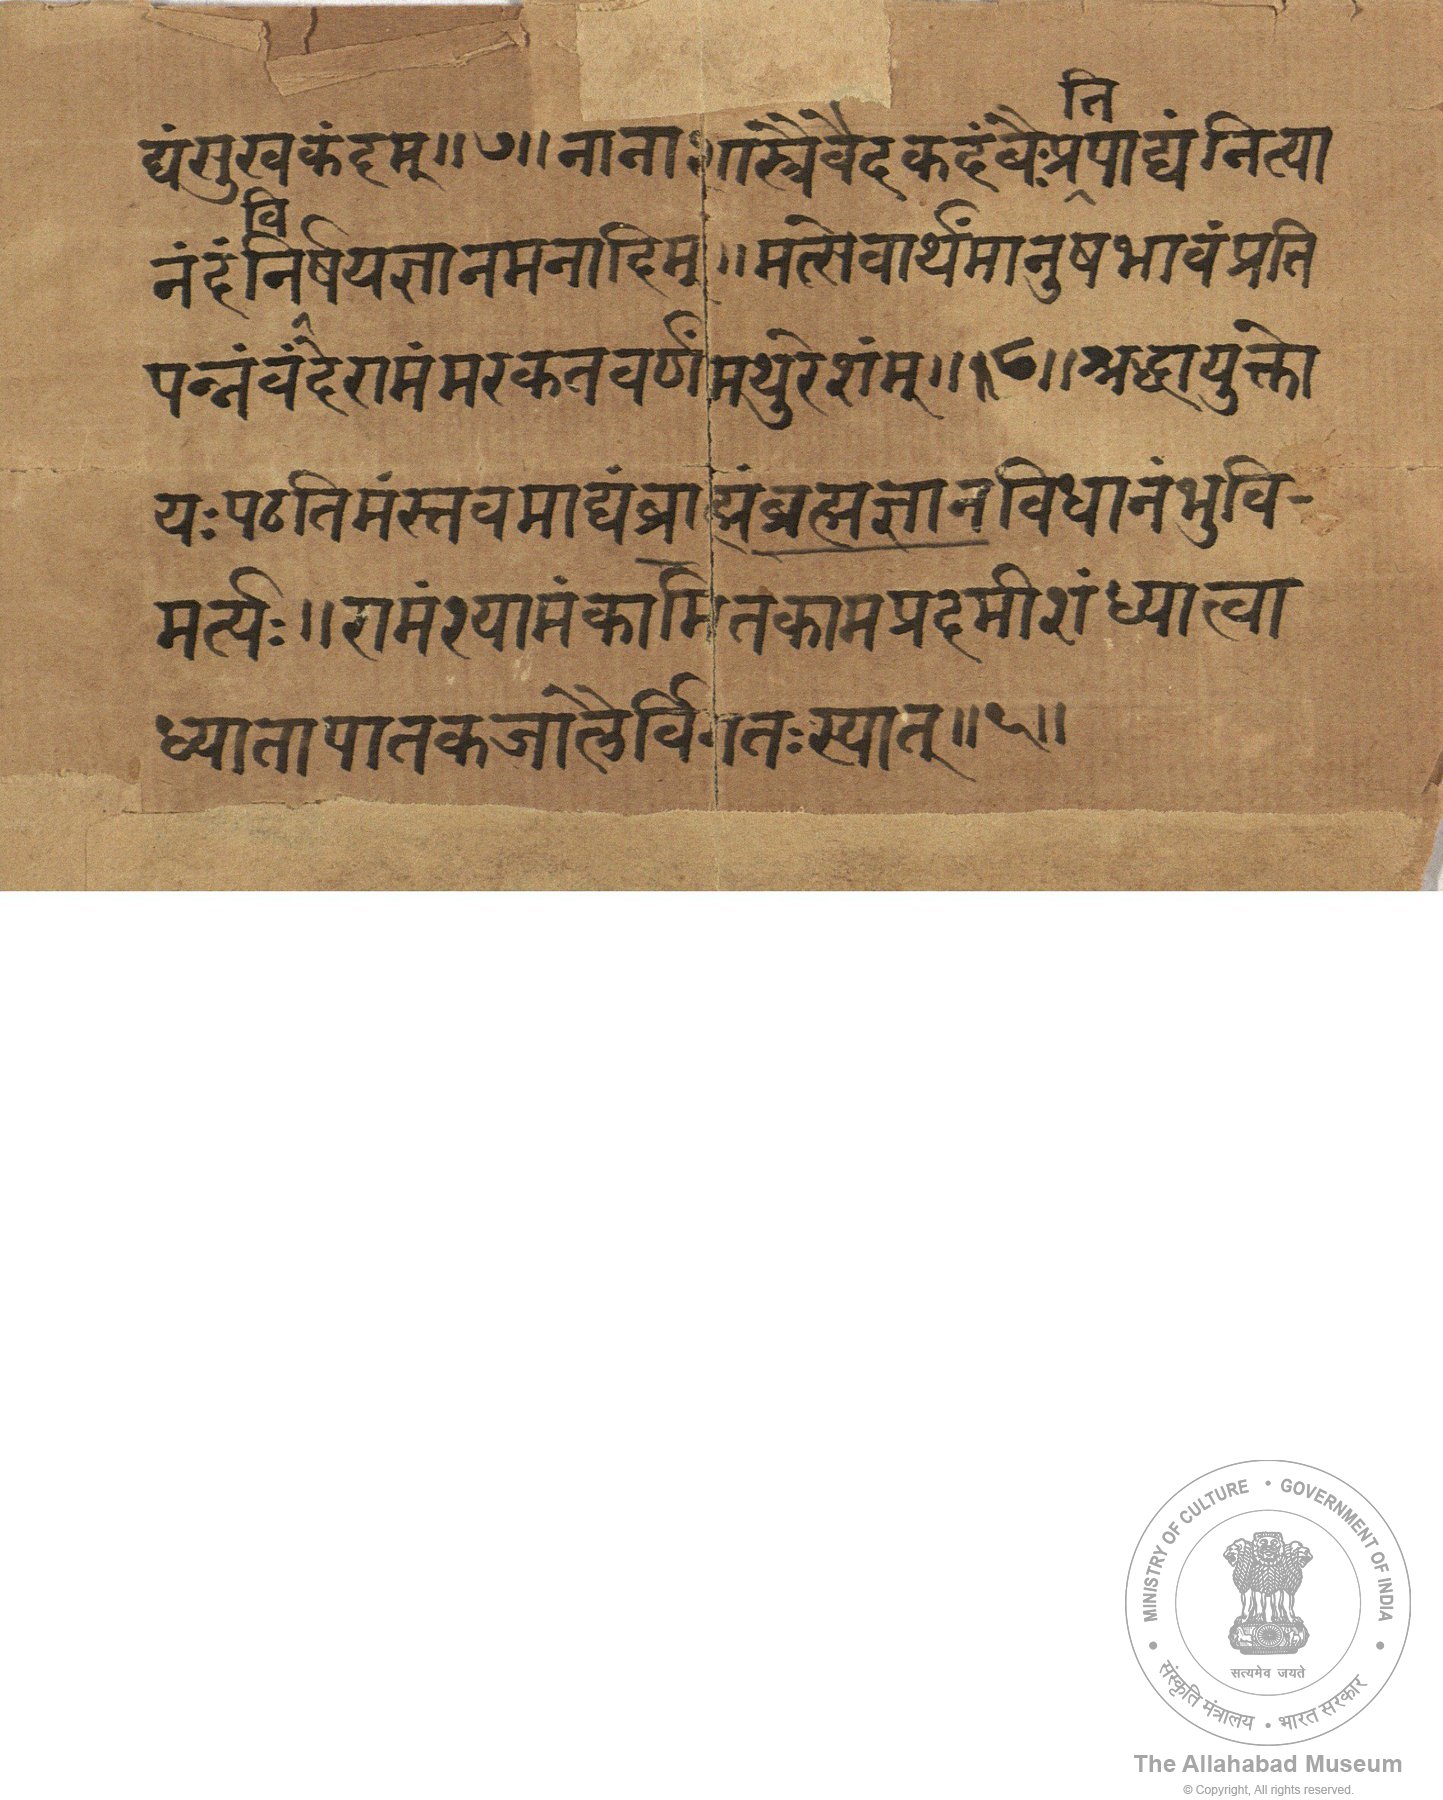 ति
द्यंसुखकंदम्॥७॥नानाशास्त्रैर्वेदकदंवैःप्रपाद्यंनित्या
वि
नंदंनिर्षयज्ञानमनादिम्॥मत्सेवार्थंमानुषभावंप्रति
पन्नंवंदेरामंमरकतवर्णंमथुरेशंम्॥८॥श्रद्धायुक्तो
यःपठतिमंस्तवमाद्यंब्राह्मंब्रह्मज्ञानविधानंभुवि-
मर्त्यः॥रामंश्यामंकामितकामप्रदमीशंध्यात्वा
ध्यातापातकजालैर्विगतःस्यात्॥९॥
MINISTRY OF CULTURE • GOVERNMENT OF INDIA
सत्यमेव जयते
संस्कृति मंत्रालय • भारत सरकार
The Allahabad Museum
© Copyright, All rights reserved.